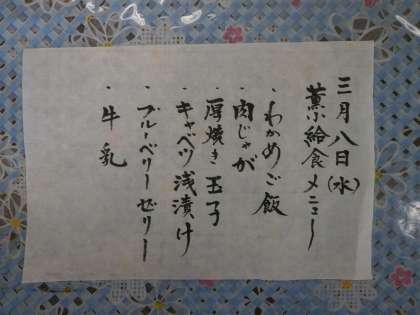 三月八日(水)
薫小給食メニュー
・わかめご飯
・肉じゃが
・厚焼き玉子
・キャベツ浅漬け
・ブルーベリーゼリー
・牛乳